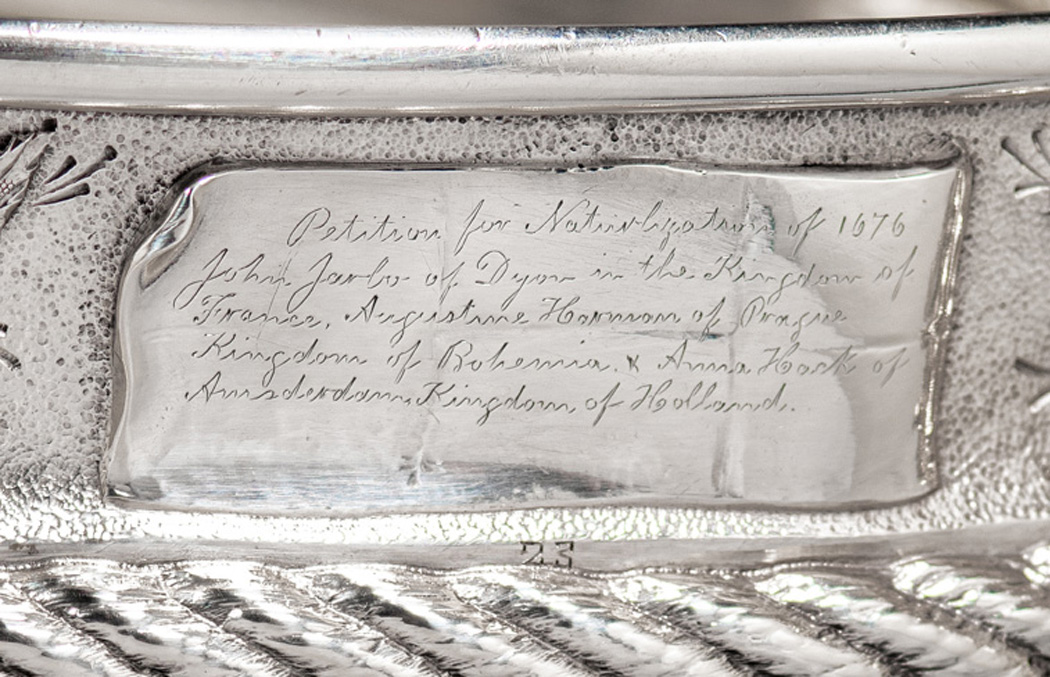 Petition for Naturlization of 1676
John Jarbo of Dyon in the Kingdom of
France, Augustine Harman of Prague
Kingdom of Bohemia. & Anna Hack of
Amsderdam Kingdom of Holland.
23